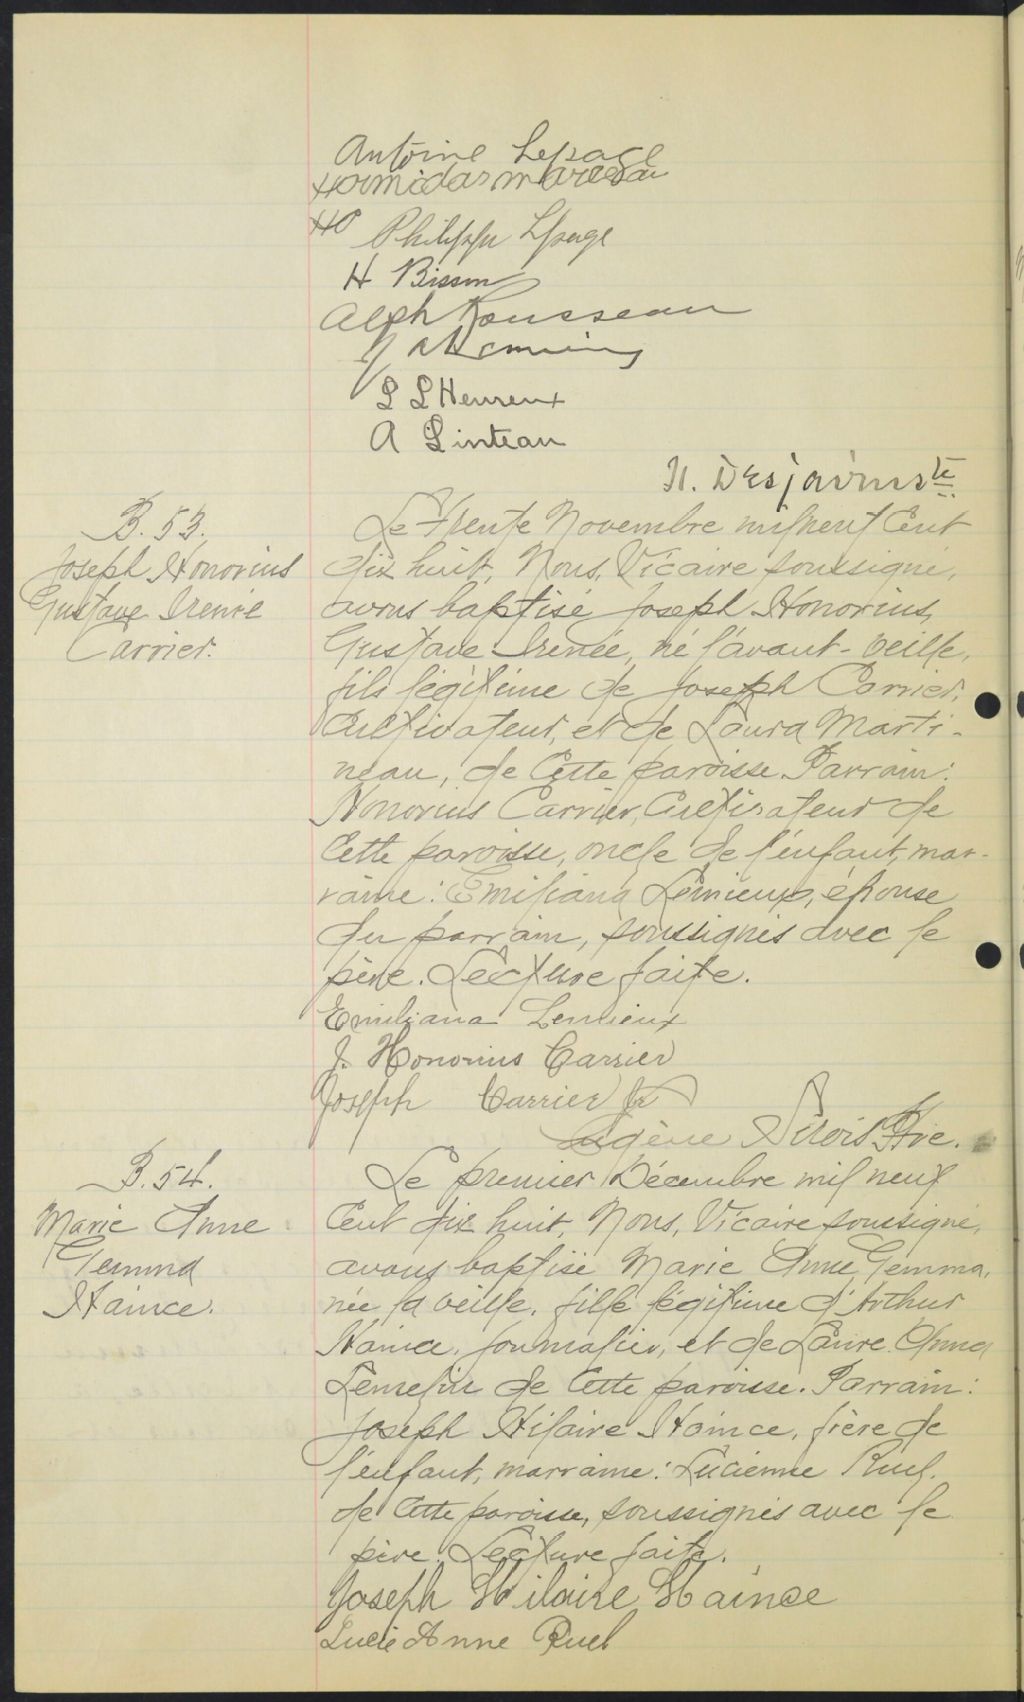 Antoine Lepage
Hormidas Marceau
Philippe Lpage
H Bisson
Alph Rousseau
L L Heureux
A Linteau
H. Desjardins
B. 53.
Joseph Honorius
Gustave Irenée
Carrier.
Le trente Novembre mil neuf Cent
dix huit, Nous, Vicaire soussigné,
avons baptisé Joseph Honorius,
Gustave Irenée, né l'avant-veille,
fils légitime de Joseph Carrier,
Cultivateur, et de Laura Marti-
neau, de Cette paroisse. Parrain:
Honorius Carrier, Cultivateur de
Cette paroisse, oncle de l'enfant, mar-
raine: Emiliana Lemieux, épouse
du parrain, soussignés avec le
père. Lecture faite.
Emiliana Lemieux
J. Honorius Carrier
Joseph Carrier Jr
Eugène Sirois Ptre.
B. 54.
Marie Anne
Gemma
Haince.
Le premier Décembre mil neuf
Cent dix huit, Nous, Vicaire soussigné,
avons baptisé Marie Anne Gemma,
née la veille, fille légitime d'Arthur
Haince, journalier, et de Laure Anna
Lemelin de Cette paroisse. Parrain:
Joseph Hilaire Haince, frère de
l'enfant, marraine: Lucienne Ruel,
de Cette paroisse, soussignés avec le
père. Lecture faite.
Joseph Hilaire Hainse
Lucie Anne Ruel